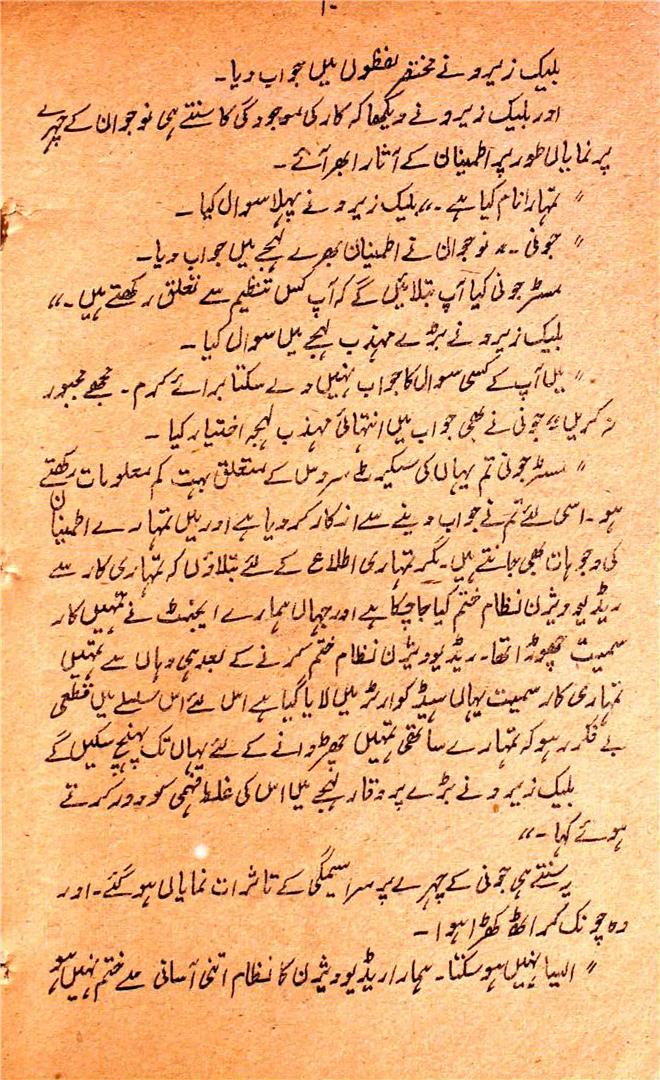 ۱۰
بلیک زیرو نے مختصر لفظوں میں جواب دیا۔
اور بلیک زیرو نے دیکھا کہ کار کی موجودگی کا سنتے ہی نوجوان کے چہرے
پر نمایاں طور پر اطمینان کے آثار ابھر آئے۔
" تمہارا نام کیا ہے۔" بلیک زیرو نے پہلا سوال کیا۔
" جونی۔" نوجوان نے اطمینان بھرے لہجے میں جواب دیا۔
مسٹر جونی کیا آپ بتلائیں گے کہ آپ کس تنظیم سے تعلق رکھتے ہیں۔"
بلیک زیرو نے بڑے مہذب لہجے میں سوال کیا۔
" میں آپ کے کسی سوال کا جواب نہیں دے سکتا برائے کرم۔ مجھے مجبور
نہ کریں" جونی نے بھی جواب میں انتہائی مہذب لہجہ اختیار کیا۔
" مسٹر جونی تم یہاں کی سیکرٹ سروس کے متعلق بہت کم معلومات رکھتے
ہو۔ اسی لئے تم نے جواب دینے سے انکار کر دیا ہے اور میں تمہارے اطمینان
کی وجوہات بھی جانتے ہیں۔ مگر تمہاری اطلاع کے لئے بتلاؤں کہ تمہاری کار سے
ریڈیو ویژن نظام ختم کیا جا چکا ہے اور جہاں ہمارے ایجنٹ نے تمہیں کار
سمیت چھوڑا تھا۔ ریڈیو ویژن نظام ختم کرنے کے بعد ہی وہاں سے تمہیں
تمہاری کار سمیت یہاں ہیڈ کوارٹر میں لایا گیا ہے اس لئے اس سلسلے میں قطعی
بے فکر رہو کہ تمہارے ساتھی تمہیں چھڑوانے کے لئے یہاں تک پہنچ سکیں گے
بلیک زیرو نے بڑے پر وقار لہجے میں اس کی غلط فہمی کو دور کرتے
ہوئے کہا۔"
یہ سنتے ہی جونی کے چہرے پر سراسیمگی کے تاثرات نمایاں ہو گئے۔ اور
وہ چونک کر اٹھ کھڑا ہوا۔
" ایسا نہیں ہو سکتا۔ ہمارا ریڈیو ویژن کا نظام اتنی آسانی سے ختم نہیں ہو